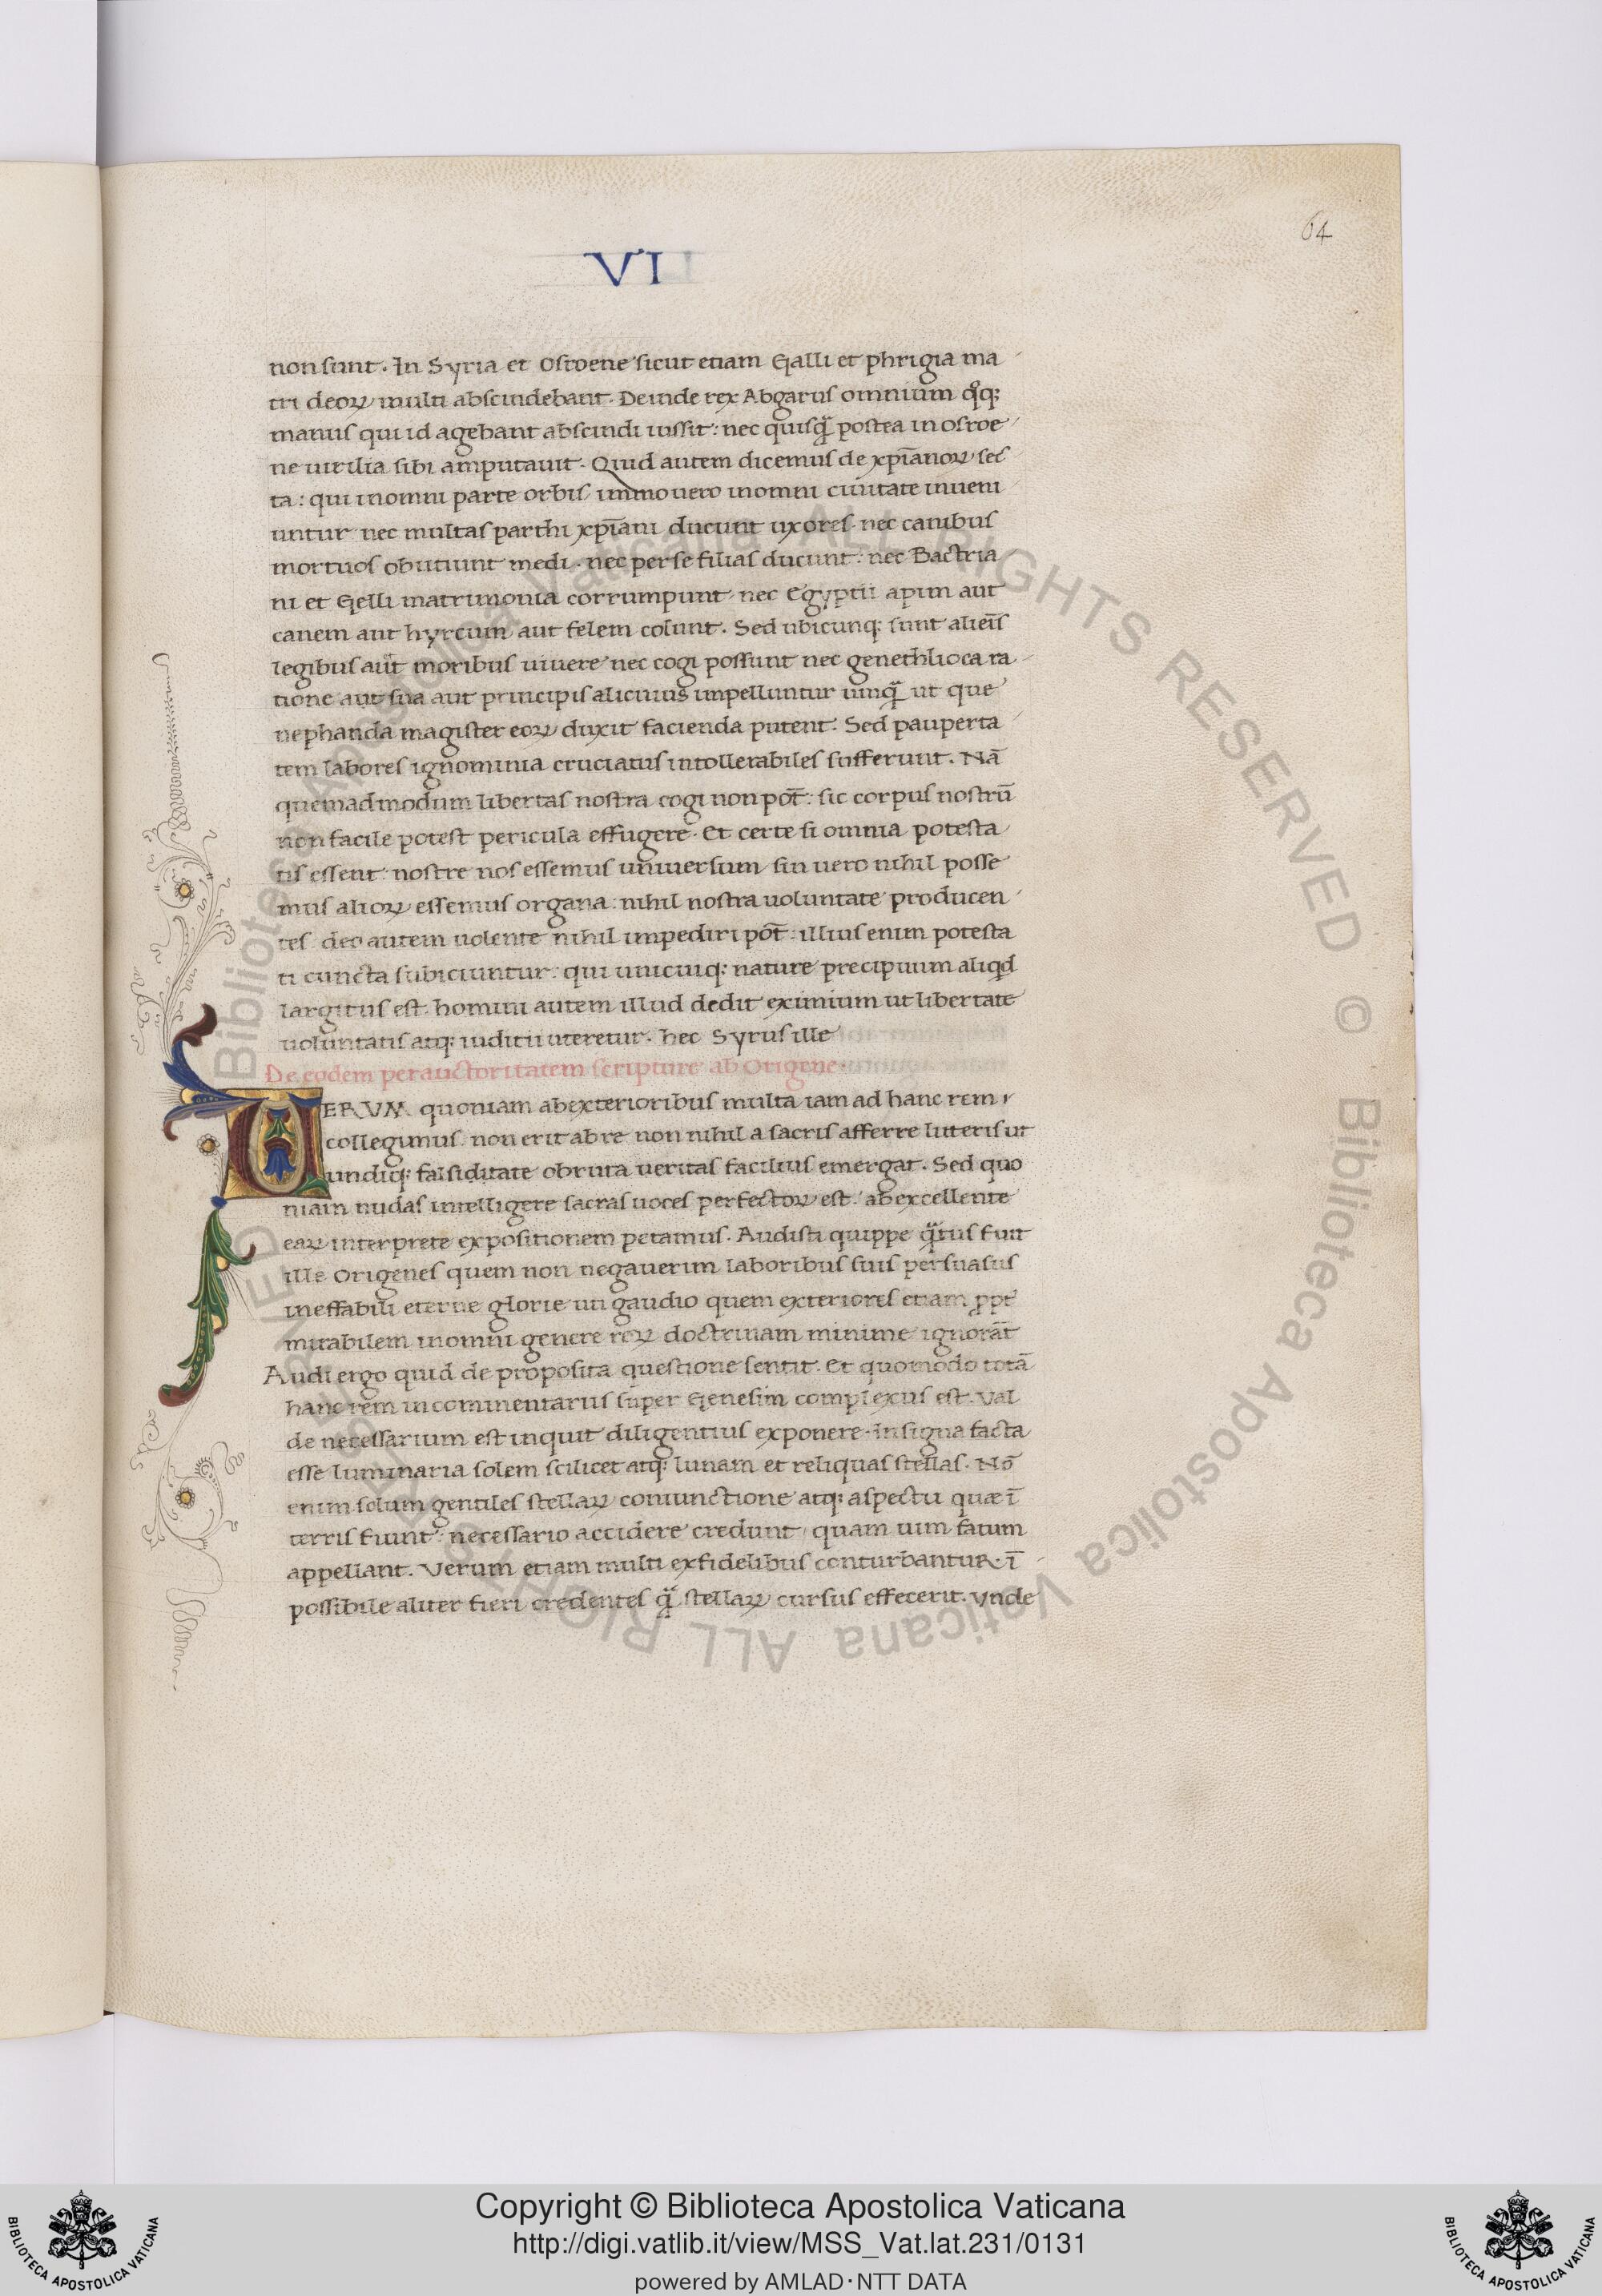 64
VI
non sunt. In Syria et Ostoene sicut etiam Galli et phrigia ma
tri deoꝝ multi abscindebant. Deinde rex Abgarus omnium qͦqꝫ
manus qui id agebant abscindi iussit: nec quisqᷓ postea in ostoe
ne uirilia sibi amputauit. Quid autem dicemus de xp̄ianoꝝ sec
ta: qui in omni parte orbis immo uero in omni ciuitate inueni
untur nec multas parthi xp̄iani ducunt uxores. nec canibus
mortuos obiitiunt medi. nec perse filias ducunt: nec Bactria
ni et Gelli matrimonia corrumpunt. nec Egyptii apim aut
canem aut hyrcum aut felem colunt. Sed ubicunqꝫ sunt alieīs
legibus aut moribus uiuere nec cogi possunt nec genethlioca ra
tione aut sua aut principis alicuius impelluntur unqᷓ ut que
nephanda magister eoꝝ duxit facienda putent. Sed pauperta
tem labores ignominia cruciatus intollerabiles sufferunt. Nā
quemadmodum libertas nostra cogi non pot̄: sic corpus nostrū
non facile potest pericula effugere. Et certe si omnia potesta
tis essent nostre nos essemus uniuersum sin uero nihil posse
mus alioꝝ essemus organa: nihil nostra uoluntate producen
tes: deo autem uolente nihil impediri pot̄: illius enim potesta
ti cuncta subiciuntur: qui unicuiqꝫ nature precipuum aliqd
largitus est. homini autem illud dedit eximium ut libertate
uoluntatis atqꝫ iuditii uteretur. hec Syrus ille
De eodem per auctoritatem scripture ab Origene
VERVM quoniam ab exterioribus multa iam ad hanc rem
collegimus. non erit ab re non nihil a sacris afferre litteris ut
undiqꝫ falsiditate obruta ueritas facilius emergat. Sed quo
niam nudas intelligere sacras uoces perfectoꝝ est. ab excellente
eaꝝ interprete expositionem petamus. Audisti quippe qᷓtus fuit
ille Origenes quem non negauerim laboribus suis persuasus
ineffabili eterne glorie uti gaudio quem exteriores etiam ꝓpt̄
mirabilem in omni genere reꝝ doctrinam minime ignorāt
Audi ergo quid de proposita questione sentit. Et quomodo totā
hanc rem in commentariis super Genesim complexus est. Val
de necessarium est inquit diligentius exponere. In signa facta
esse luminaria solem scilicet atqꝫ lunam et reliquas stellas. Nō
enim solum gentiles stellaꝝ coniunctione atqꝫ aspectu quæ ī
terris fiunt: necessario accidere credunt quam uim fatum
appellant. Verum etiam multi ex fidelibus conturbantur ī
possibile aliter fieri credentes qᷓ stellaꝝ cursus effecerit. Vnde
Biblioteca Apostolica Vaticana ALL RIGHTS RESERVED © Biblioteca Apostolica Vaticana ALL RIGHTS RESERVED ©
Copyright © Biblioteca Apostolica Vaticana
http://digi.vatlib.it/view/MSS_Vat.lat.231/0131
powered by AMLAD·NTT DATA
BIBLIOTECA APOSTOLICA VATICANA
BIBLIOTECA APOSTOLICA VATICANA